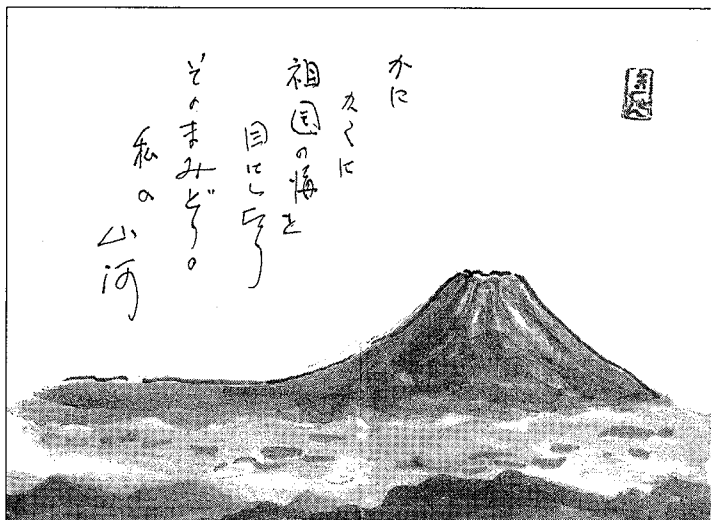 かに
かくに
祖国の を
目にし
そのまみどりの
私の
山河